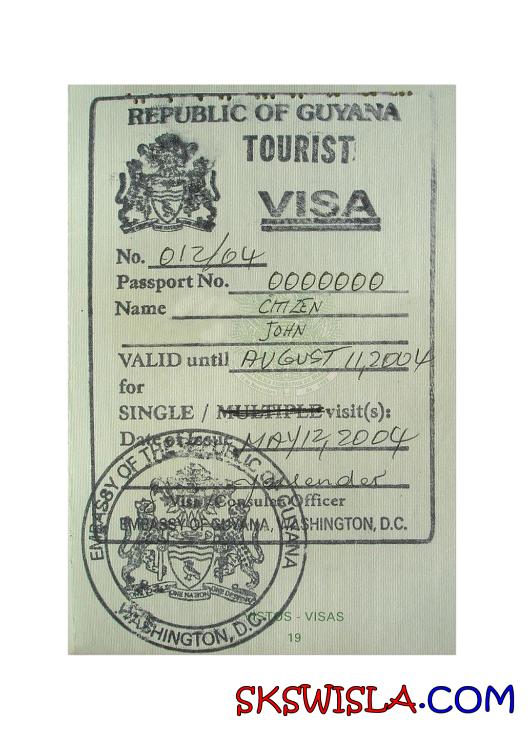 REPUBLIC OF GUYANA
TOURIST
VISA
No. 012/04
Passport No. 0000000
Name CITIZEN
JOHN
VALID until AUGUST 11, 2004
for
SINGLE / MULTIPLE visit(s):
Date of Issue MAY 12, 2004
Visa / Consular Officer
EMBASSY OF GUYANA, WASHINGTON, D.C.
EMBASSY OF THE REPUBLIC OF GUYANA
ONE NATION
WASHINGTON, D.C.
VISTOS - VISAS
19
SKSWISLA.COM